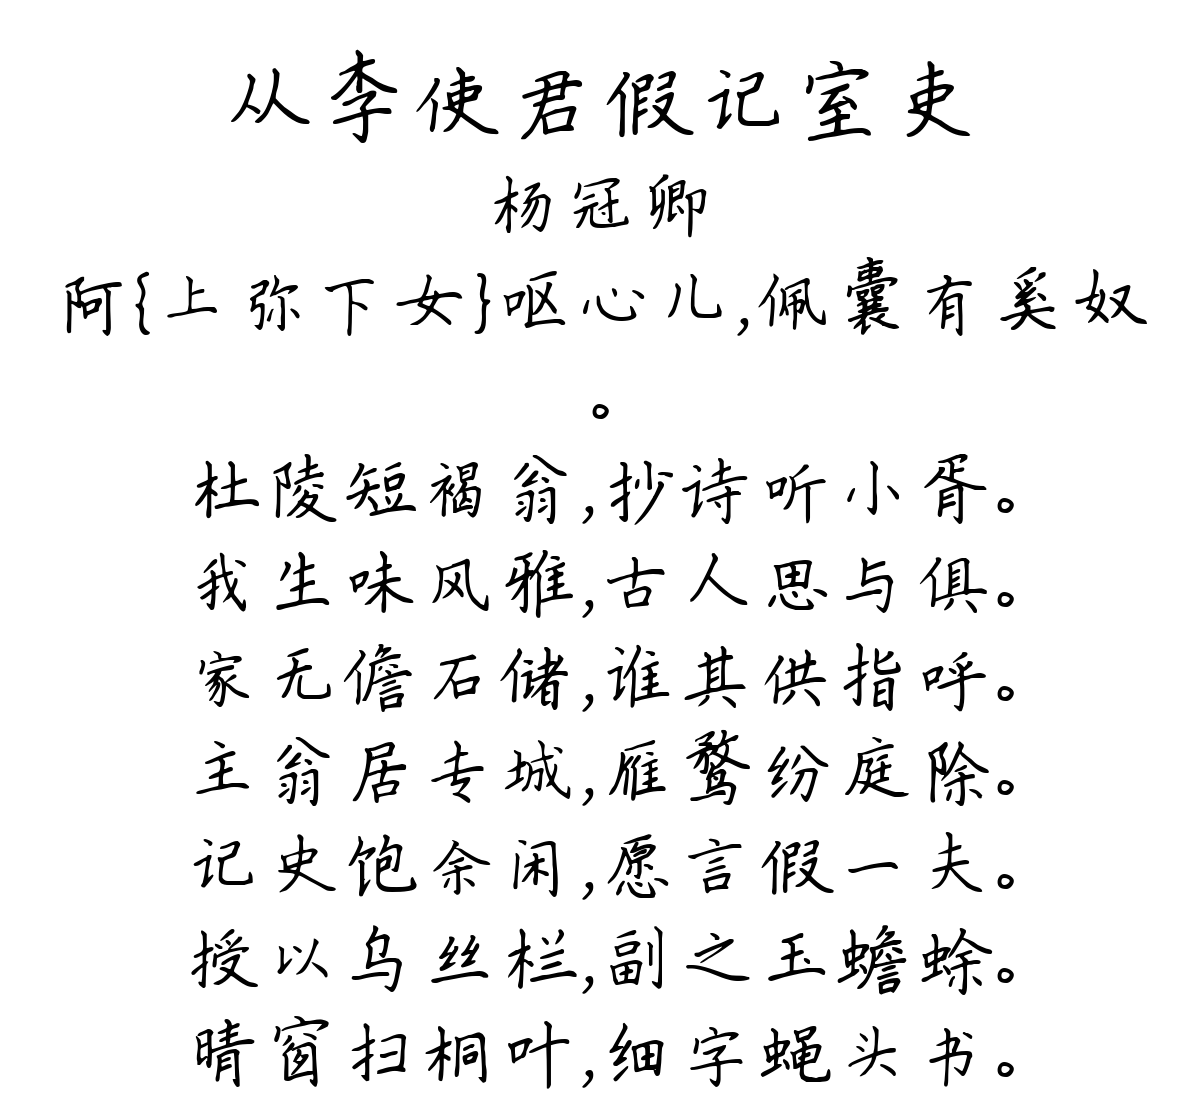 从李使君假记室吏
杨冠卿
阿{上弥下女}呕心儿,佩囊有奚奴
。
杜陵短褐翁,抄诗听小胥。
我生味风雅,古人思与俱。
家无儋石储,谁其供指呼。
主翁居专城,雁鹜纷庭除。
记史饱余闲,愿言假一夫。
授以乌丝栏,副之玉蟾蜍。
晴窗扫桐叶,细字蝇头书。